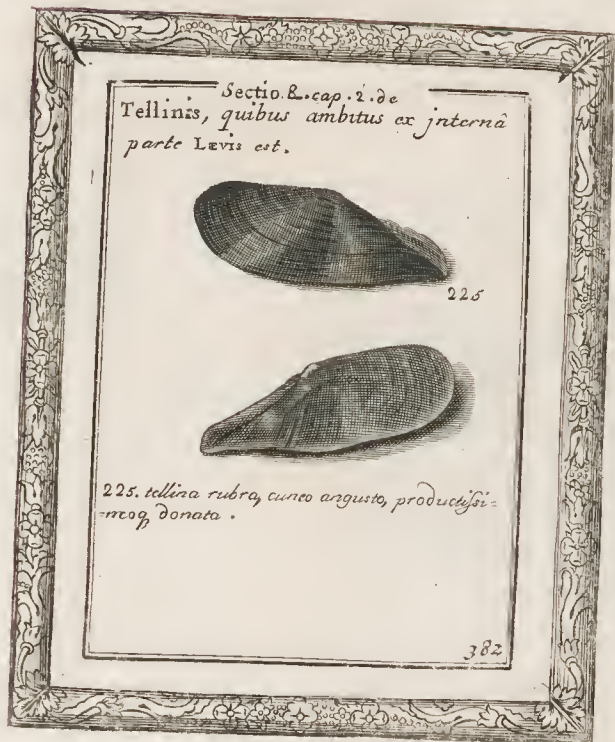 Sectio. &. cap. 2. de
Tellinis, quibus ambitus ex jnternâ
parte Lævis est.
225
225. tellina rubra, cuneo angusto, productissi=
=moq, donata.
382